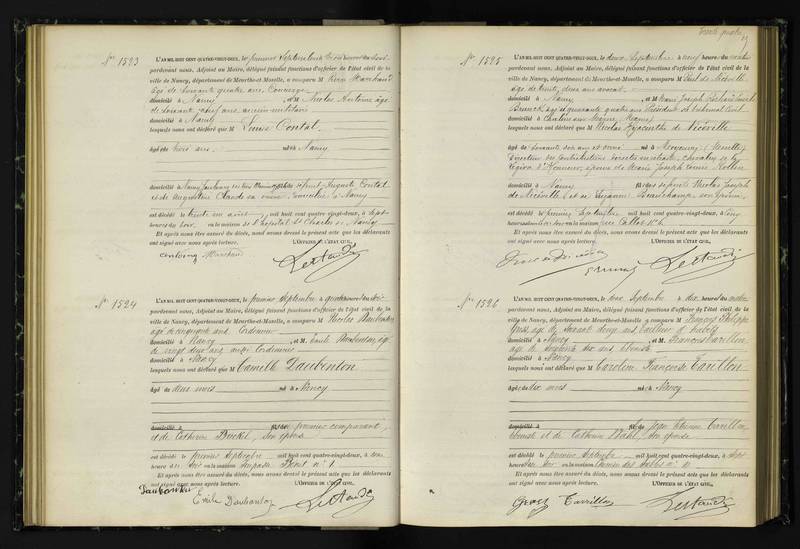 Nº 1523
L'AN MIL HUIT CENT QUATRE-VINGT-DEUX, le premier Septembre à trois heures du soir
pardevant nous, Adjoint au Maire, délégué faisant fonctions d'officier de l'état civil de la
ville de Nancy, département de Meurthe-et-Moselle, a comparu M
âgé de soixante quatre ans, Concierge
domicilié à Nancy, et M Nicolas Antoine âgé
de soixante neuf ans, ancien militaire
domicilié à Nancy
lesquels nous ont déclaré que M Louise Contal
âgé de trois ans né à Nancy
domicilié à Nancy, faubourg des trois Maisons fille de défunt Auguste Contal
et de Augustine Claude sa veuve, domiciliée à Nancy
est décédé le trente un août mil huit cent quatre-vingt-deux, à sept
heures du soir, en la maison de l'hôpital St Charles à Nancy
Et après nous être assuré du décès, nous avons dressé le présent acte que les déclarants
ont signé avec nous après lecture. L'OFFICIER DE L'ÉTAT CIVIL,
Nº 1524
L'AN MIL HUIT CENT QUATRE-VINGT-DEUX, le premier Septembre à quatre heures du soir
pardevant nous, Adjoint au Maire, délégué faisant fonctions d'officier de l'état civil de la
ville de Nancy, département de Meurthe-et-Moselle, a comparu M Nicolas Daubenton
âgé de cinquante ans Cordonnier
domicilié à Nancy, et M Emile Daubenton, âgé
de vingt deux ans aussi Cordonnier
domicilié à Nancy
lesquels nous ont déclaré que M Camille Daubenton
âgé de deux mois né à Nancy
domicilié à fils du premier comparant
et de Catherine Dockel, son épouse
est décédé le premier Septembre mil huit cent quatre-vingt-deux, à onze
heures du en la maison Impasse Benit nº 1
Et après nous être assuré du décès, nous avons dressé le présent acte que les déclarants
ont signé avec nous après lecture. L'OFFICIER DE L'ÉTAT CIVIL,
Daubenton
Emile Daubenton
Nº 1525
L'AN MIL HUIT CENT QUATRE-VINGT-DEUX, le deux Septembre à neuf heures du matin
pardevant nous, Adjoint au Maire, délégué faisant fonctions d'officier de l'état civil de la
ville de Nancy, département de Meurthe-et-Moselle, a comparu M Paul de Nicéville
âgé de trente deux ans avocat
domicilié à Nancy, et M Marie Joseph
âgé de quarante quatre ans Président du tribunal Civil
domicilié à Châlons sur Marne (Marne)
lesquels nous ont déclaré que M Nicolas Hyacinthe de Nicéville
âgé de soixante dix ans et demi né à Moyeuvre (Moselle)
Directeur des Contributions directes en retraite, chevalier de la
Légion d'Honneur, époux de Marie Joseph Louise Rollin
domicilié à Nancy fils de défunts Nicolas Joseph
de Nicéville et de Suzanne Beauchamp son épouse
est décédé le premier Septembre mil huit cent quatre-vingt-deux, à cinq
heures du soir en la maison rue Callot nº 6
Et après nous être assuré du décès, nous avons dressé le présent acte que les déclarants
ont signé avec nous après lecture. L'OFFICIER DE L'ÉTAT CIVIL,
Nº 1526
L'AN MIL HUIT CENT QUATRE-VINGT-DEUX, le deux Septembre à dix heures du matin
pardevant nous, Adjoint au Maire, délégué faisant fonctions d'officier de l'état civil de la
ville de Nancy, département de Meurthe-et-Moselle, a comparu M François Philippe
Gross, âgé de soixante douze ans tailleur d'habits
domicilié à Nancy, et M François Tarillon
âgé de soixante six ans ébéniste
domicilié à Nancy
lesquels nous ont déclaré que M Caroline Françoise Tarillon
âgé de dix mois né à Nancy
domicilié à fille de Jean Etienne Tarillon
ébéniste et de Catherine Dahl, son épouse
est décédé le premier Septembre mil huit cent quatre-vingt-deux, à sept
heures du soir en la maison Chemin des Sables nº 10
Et après nous être assuré du décès, nous avons dressé le présent acte que les déclarants
ont signé avec nous après lecture. L'OFFICIER DE L'ÉTAT CIVIL,
Gross Tarillon